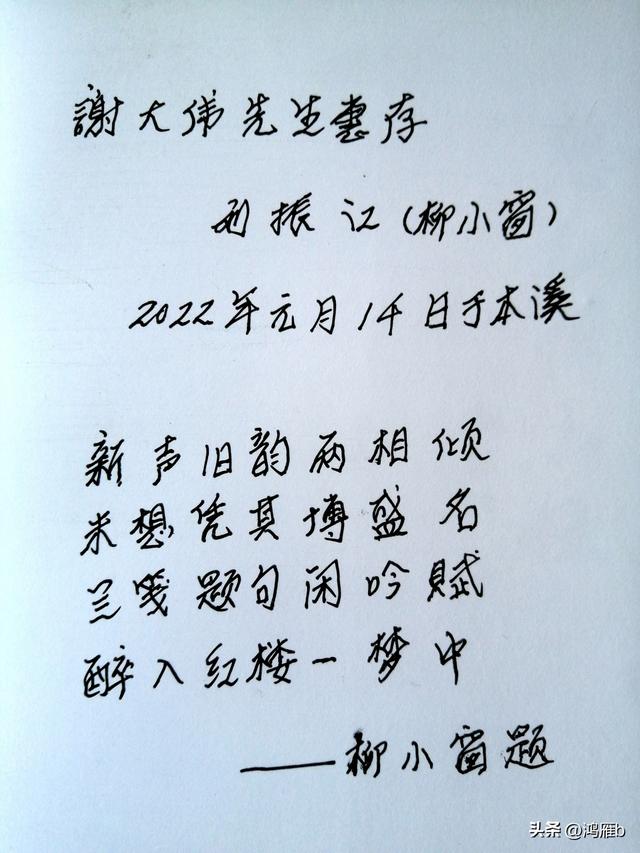 謝大伟先生惠存
振江(柳小窗)
2022年元月14日于本溪
新声旧韵两相倾
未想凭其博盛名
兰笺题句闲吟賦
醉入红楼一梦中
——柳小窗题
头条 @鸿雁b